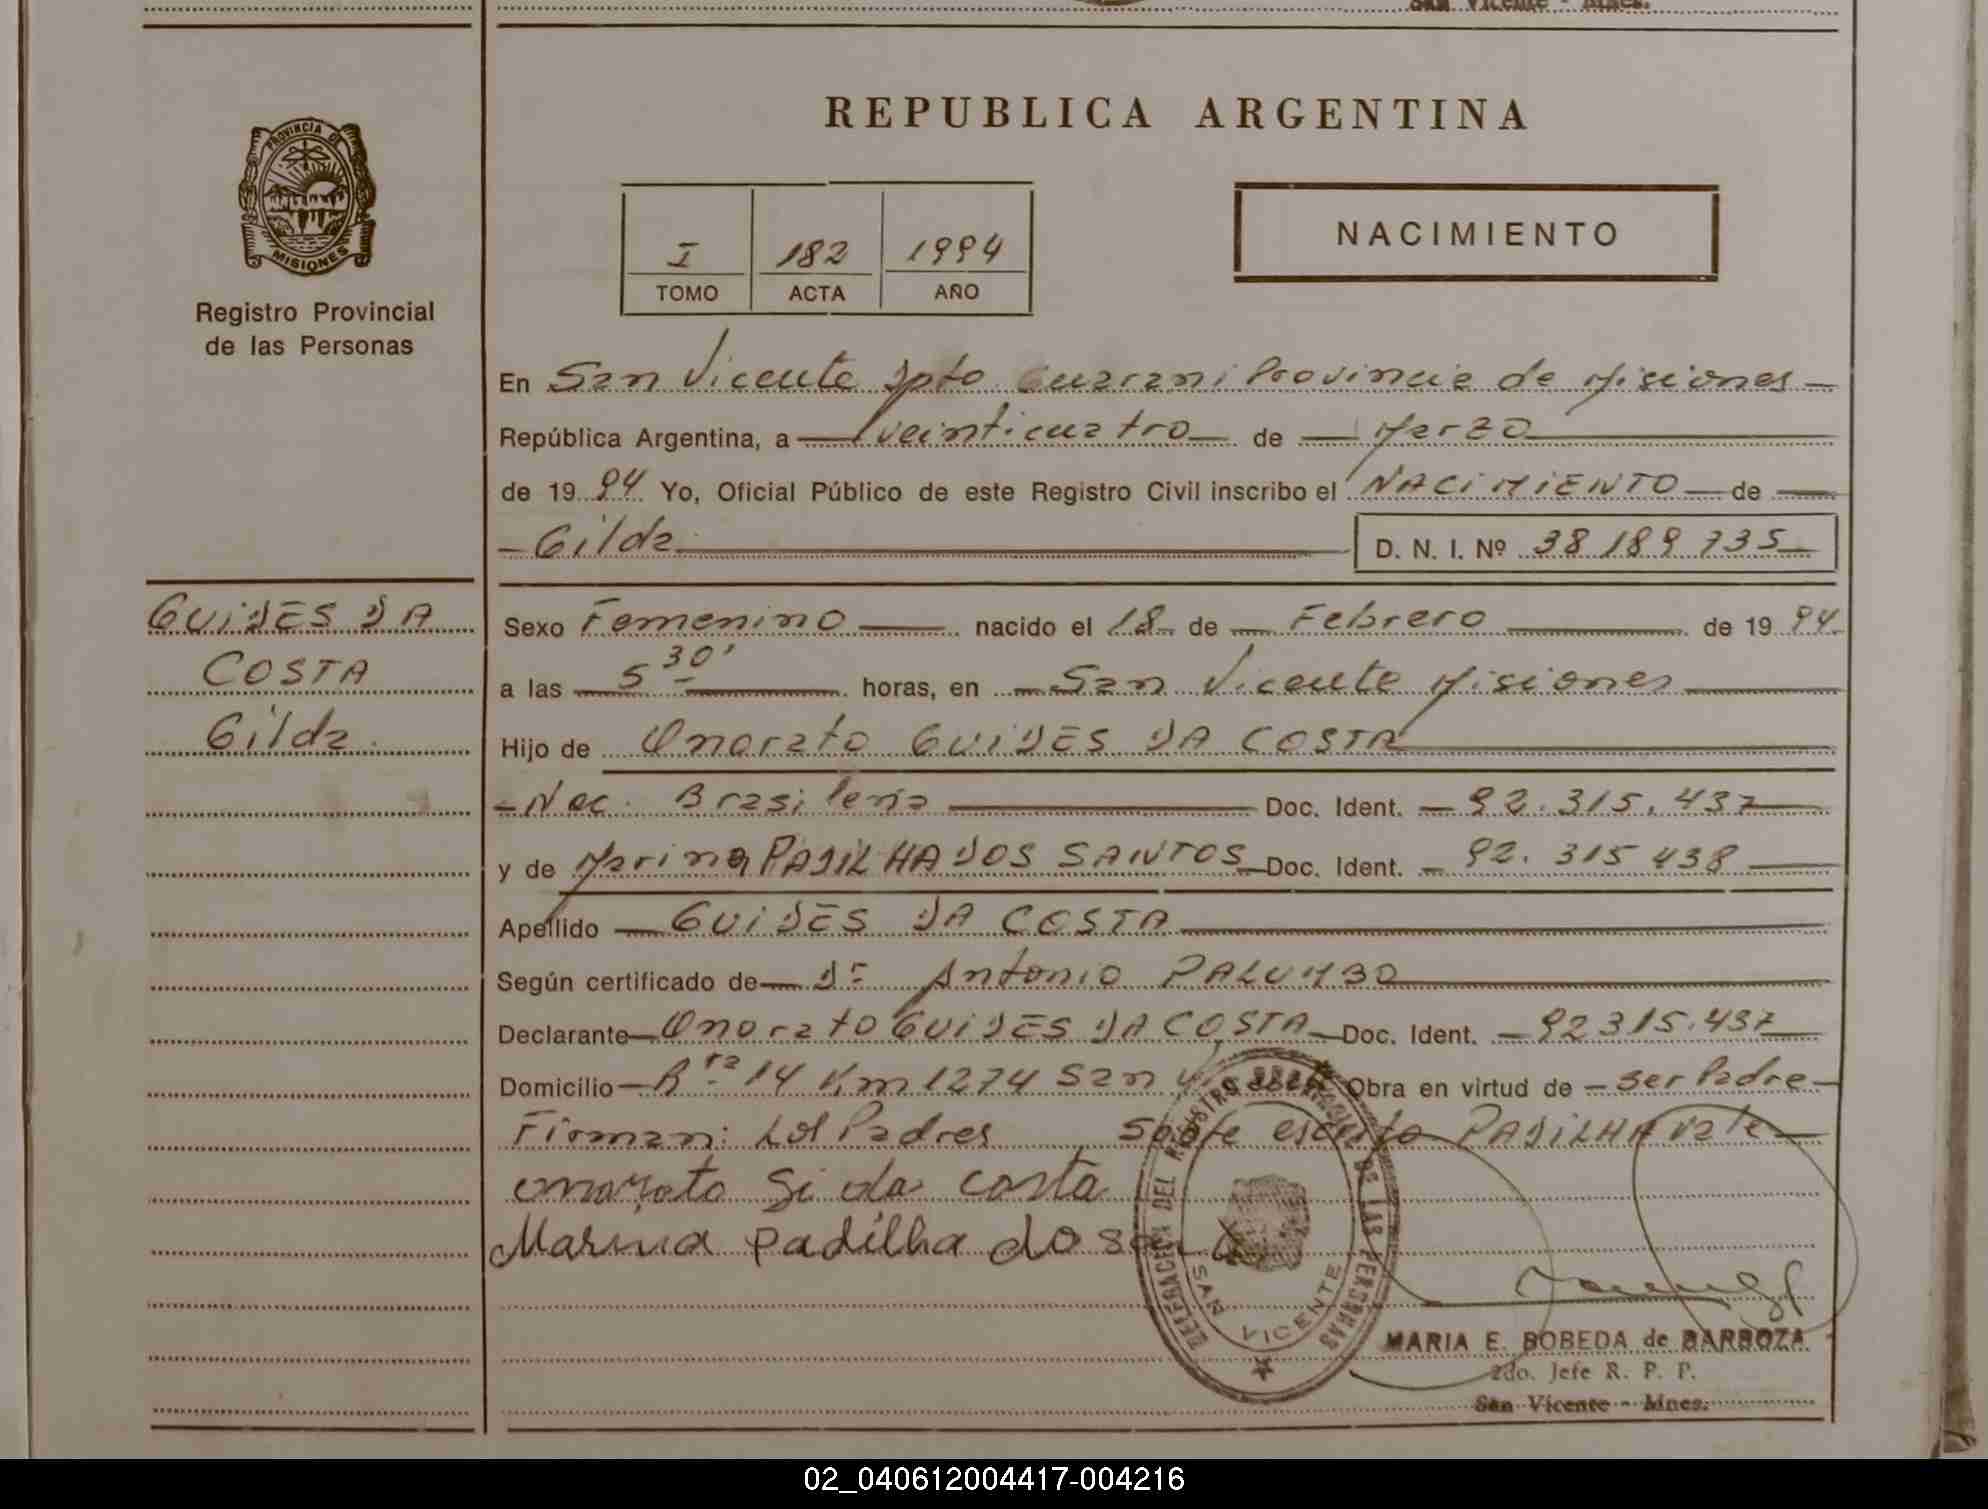 San Vicente - Mnes.
REPUBLICA ARGENTINA
PROVINCIA DE
MISIONES
Registro Provincial
de las Personas
I 182 1994
TOMO ACTA AÑO
NACIMIENTO
En San Vicente Dpto Guarani Provincia de Misiones
República Argentina, a veinticuatro de Marzo
de 1994 Yo, Oficial Público de este Registro Civil inscribo el NACIMIENTO de
Gilda D. N. I. Nº 38 189 735
GUIDES DA
COSTA
Gilda
Sexo Femenino nacido el 18 de Febrero de 1994
a las 5 30' horas, en San Vicente Misiones
Hijo de Onorato GUIDES DA COSTA
Nac. Brasileña Doc. Ident. 92.315.437
y de Marina PADILHA DOS SANTOS Doc. Ident. 92.315 438
Apellido GUIDES DA COSTA
Según certificado de Dr Antonio PALUMBO
Declarante Onorato GUIDES DA COSTA Doc. Ident. 92315.437
Domicilio Rta 14 Km 1274 San Vicente Obra en virtud de ser Padre
Firman: Los Padres Sobre escrito PADILHA vale
onorato Gi da costa
Marina padilha do
DELEGACION DEL REGISTRO PROVINCIAL DE LAS PERSONAS
SAN VICENTE
MARIA E. BOBEDA de BARBOZA
2do. Jefe R. P. P.
San Vicente - Mnes.
02_040612004417-004216